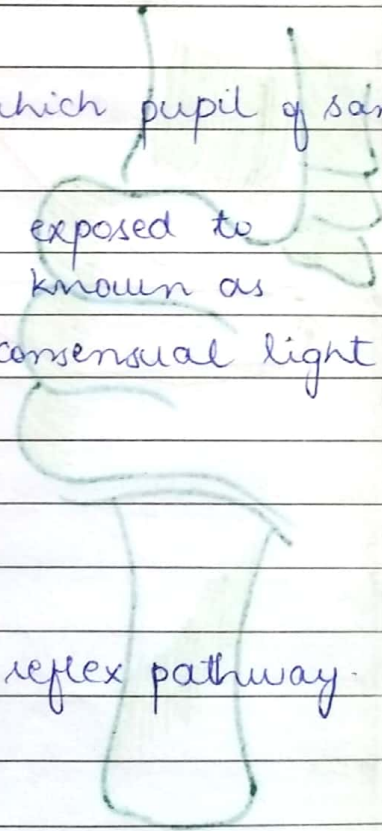 which pupil of
exposed to
known as
consensual light
reflex pathway.